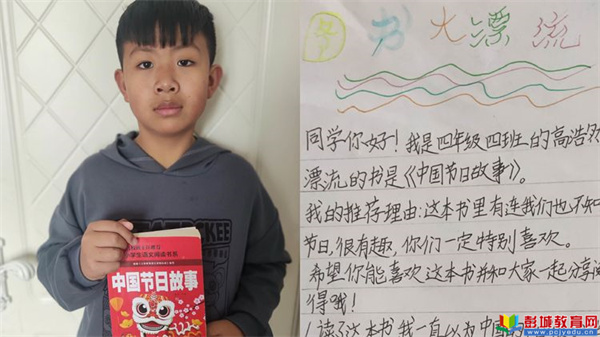 中国节日故事
书大漂流
同学你好!我是四年级四班的高浩
漂流的书是《中国节日故事》。
我的推荐理由:这本书里有连我们也不知
节日,很有趣,你们一定特别喜欢。
希望你能喜欢这本书并和大家一起分享
得哦!
读了这本书,我一直以为中国
彭城教育网
www.pcjyedu.cn